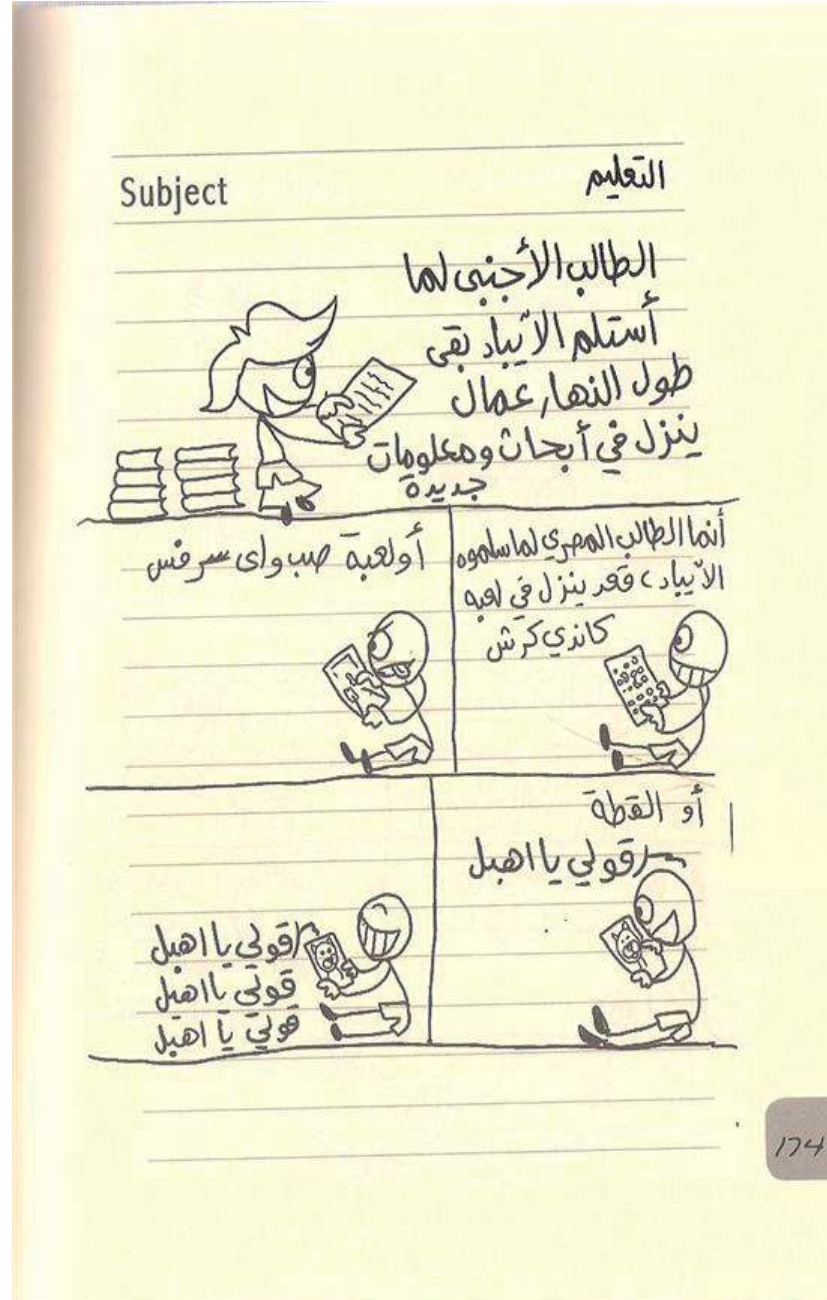 Subject
التعليم
الطالب الأجنبى لما
أستلم الآيباد بقى
طول النهار عمال
ينزل في أبحاث ومعلومات
جديدة
أنما الطالب المصري لما سلموه
الآيباد، قعد ينزل في لعبه
كاندي كرش
أو لعبة صب واى سرفس
أو القطة
قولي يا اهبل
قولي يا اهبل
قولي يا اهبل
قولي يا اهبل
174